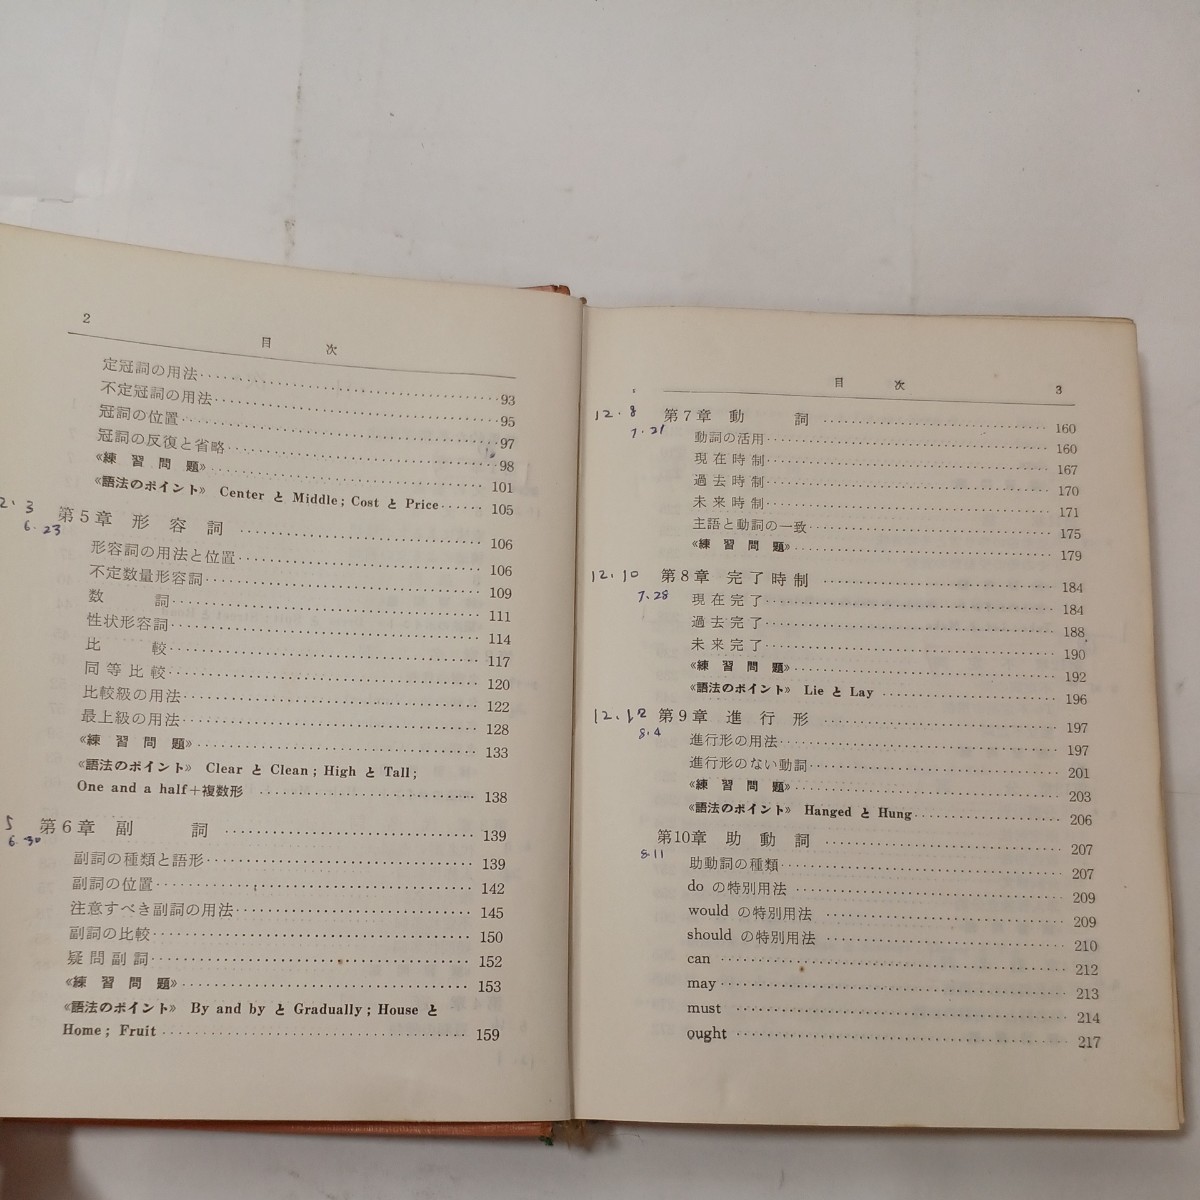 2
目 次
定冠詞の用法 93
不定冠詞の用法 95
冠詞の位置 97
冠詞の反復と省略 98
《練習問題》 101
《語法のポイント》 Center と Middle; Cost と Price 105
2.3 第5章 形容詞 106
6.23
形容詞の用法と位置 106
不定数量形容詞 109
数詞 111
性状形容詞 114
比較 117
同等比較 120
比較級の用法 122
最上級の用法 128
《練習問題》 133
《語法のポイント》 Clear と Clean; High と Tall;
One and a half+複数形 138
5 第6章 副詞 139
6.30
副詞の種類と語形 139
副詞の位置 142
注意すべき副詞の用法 145
副詞の比較 150
疑問副詞 152
《練習問題》 153
《語法のポイント》 By and by と Gradually; House と
Home; Fruit 159
目 次
3
12.8 第7章 動詞 160
7.21
動詞の活用 160
現在時制 167
過去時制 170
未来時制 171
主語と動詞の一致 175
《練習問題》 179
12.10 第8章 完了時制 184
7.28
現在完了 184
過去完了 188
未来完了 190
《練習問題》 192
《語法のポイント》 Lie と Lay 196
12.12 第9章 進行形 197
8.4
進行形の用法 197
進行形のない動詞 201
《練習問題》 203
《語法のポイント》 Hanged と Hung 206
第10章 助動詞 207
8.11
助動詞の種類 207
do の特別用法 209
would の特別用法 209
should の特別用法 210
can 212
may 213
must 214
ought 217